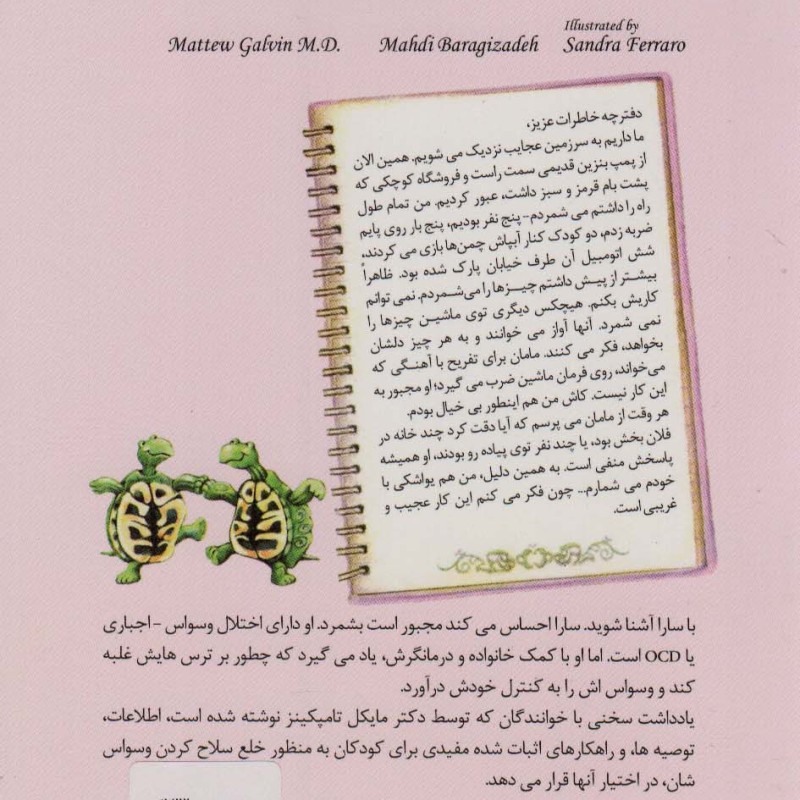 Illustrated by
Mattew Galvin M.D. Mahdi Baragizadeh Sandra Ferraro
دفترچه خاطرات عزیز،
ما داریم به سرزمین عجایب نزدیک می شویم. همین الان
از پمپ بنزین قدیمی سمت راست و فروشگاه کوچکی که
پشت بام قرمز و سبز داشت، عبور کردیم. من تمام طول
راه را داشتم می شمردم- پنج نفر بودیم، پنج بار روی پایم
ضربه زدم، دو کودک کنار آبپاش چمن‌ها بازی می کردند،
شش اتومبیل آن طرف خیابان پارک شده بود. ظاهراً
بیشتر از پیش داشتم چیزها را می‌شمردم. نمی توانم
کاریش بکنم. هیچکس دیگری توی ماشین چیزها را
نمی شمرد. آنها آواز می خوانند و به هر چیز دلشان
بخواهد، فکر می کنند. مامان برای تفریح با آهنگی که
می‌خواند، روی فرمان ماشین ضرب می گیرد؛ او مجبور به
این کار نیست. کاش من هم اینطور بی خیال بودم.
هر وقت از مامان می پرسم که آیا دقت کرد چند خانه در
فلان بخش بود، یا چند نفر توی پیاده رو بودند، او همیشه
پاسخش منفی است. به همین دلیل، من هم یواشکی با
خودم می شمارم... چون فکر می کنم این کار عجیب و
غریبی است.
با سارا آشنا شوید. سارا احساس می کند مجبور است بشمرد. او دارای اختلال وسواس - اجباری
یا OCD است. اما او با کمک خانواده و درمانگرش، یاد می گیرد که چطور بر ترس هایش غلبه
کند و وسواس اش را به کنترل خودش درآورد.
یادداشت سخنی با خوانندگان که توسط دکتر مایکل تامپکینز نوشته شده است، اطلاعات،
توصیه ها، و راهکارهای اثبات شده مفیدی برای کودکان به منظور خلع سلاح کردن وسواس
شان، در اختیار آنها قرار می دهد.